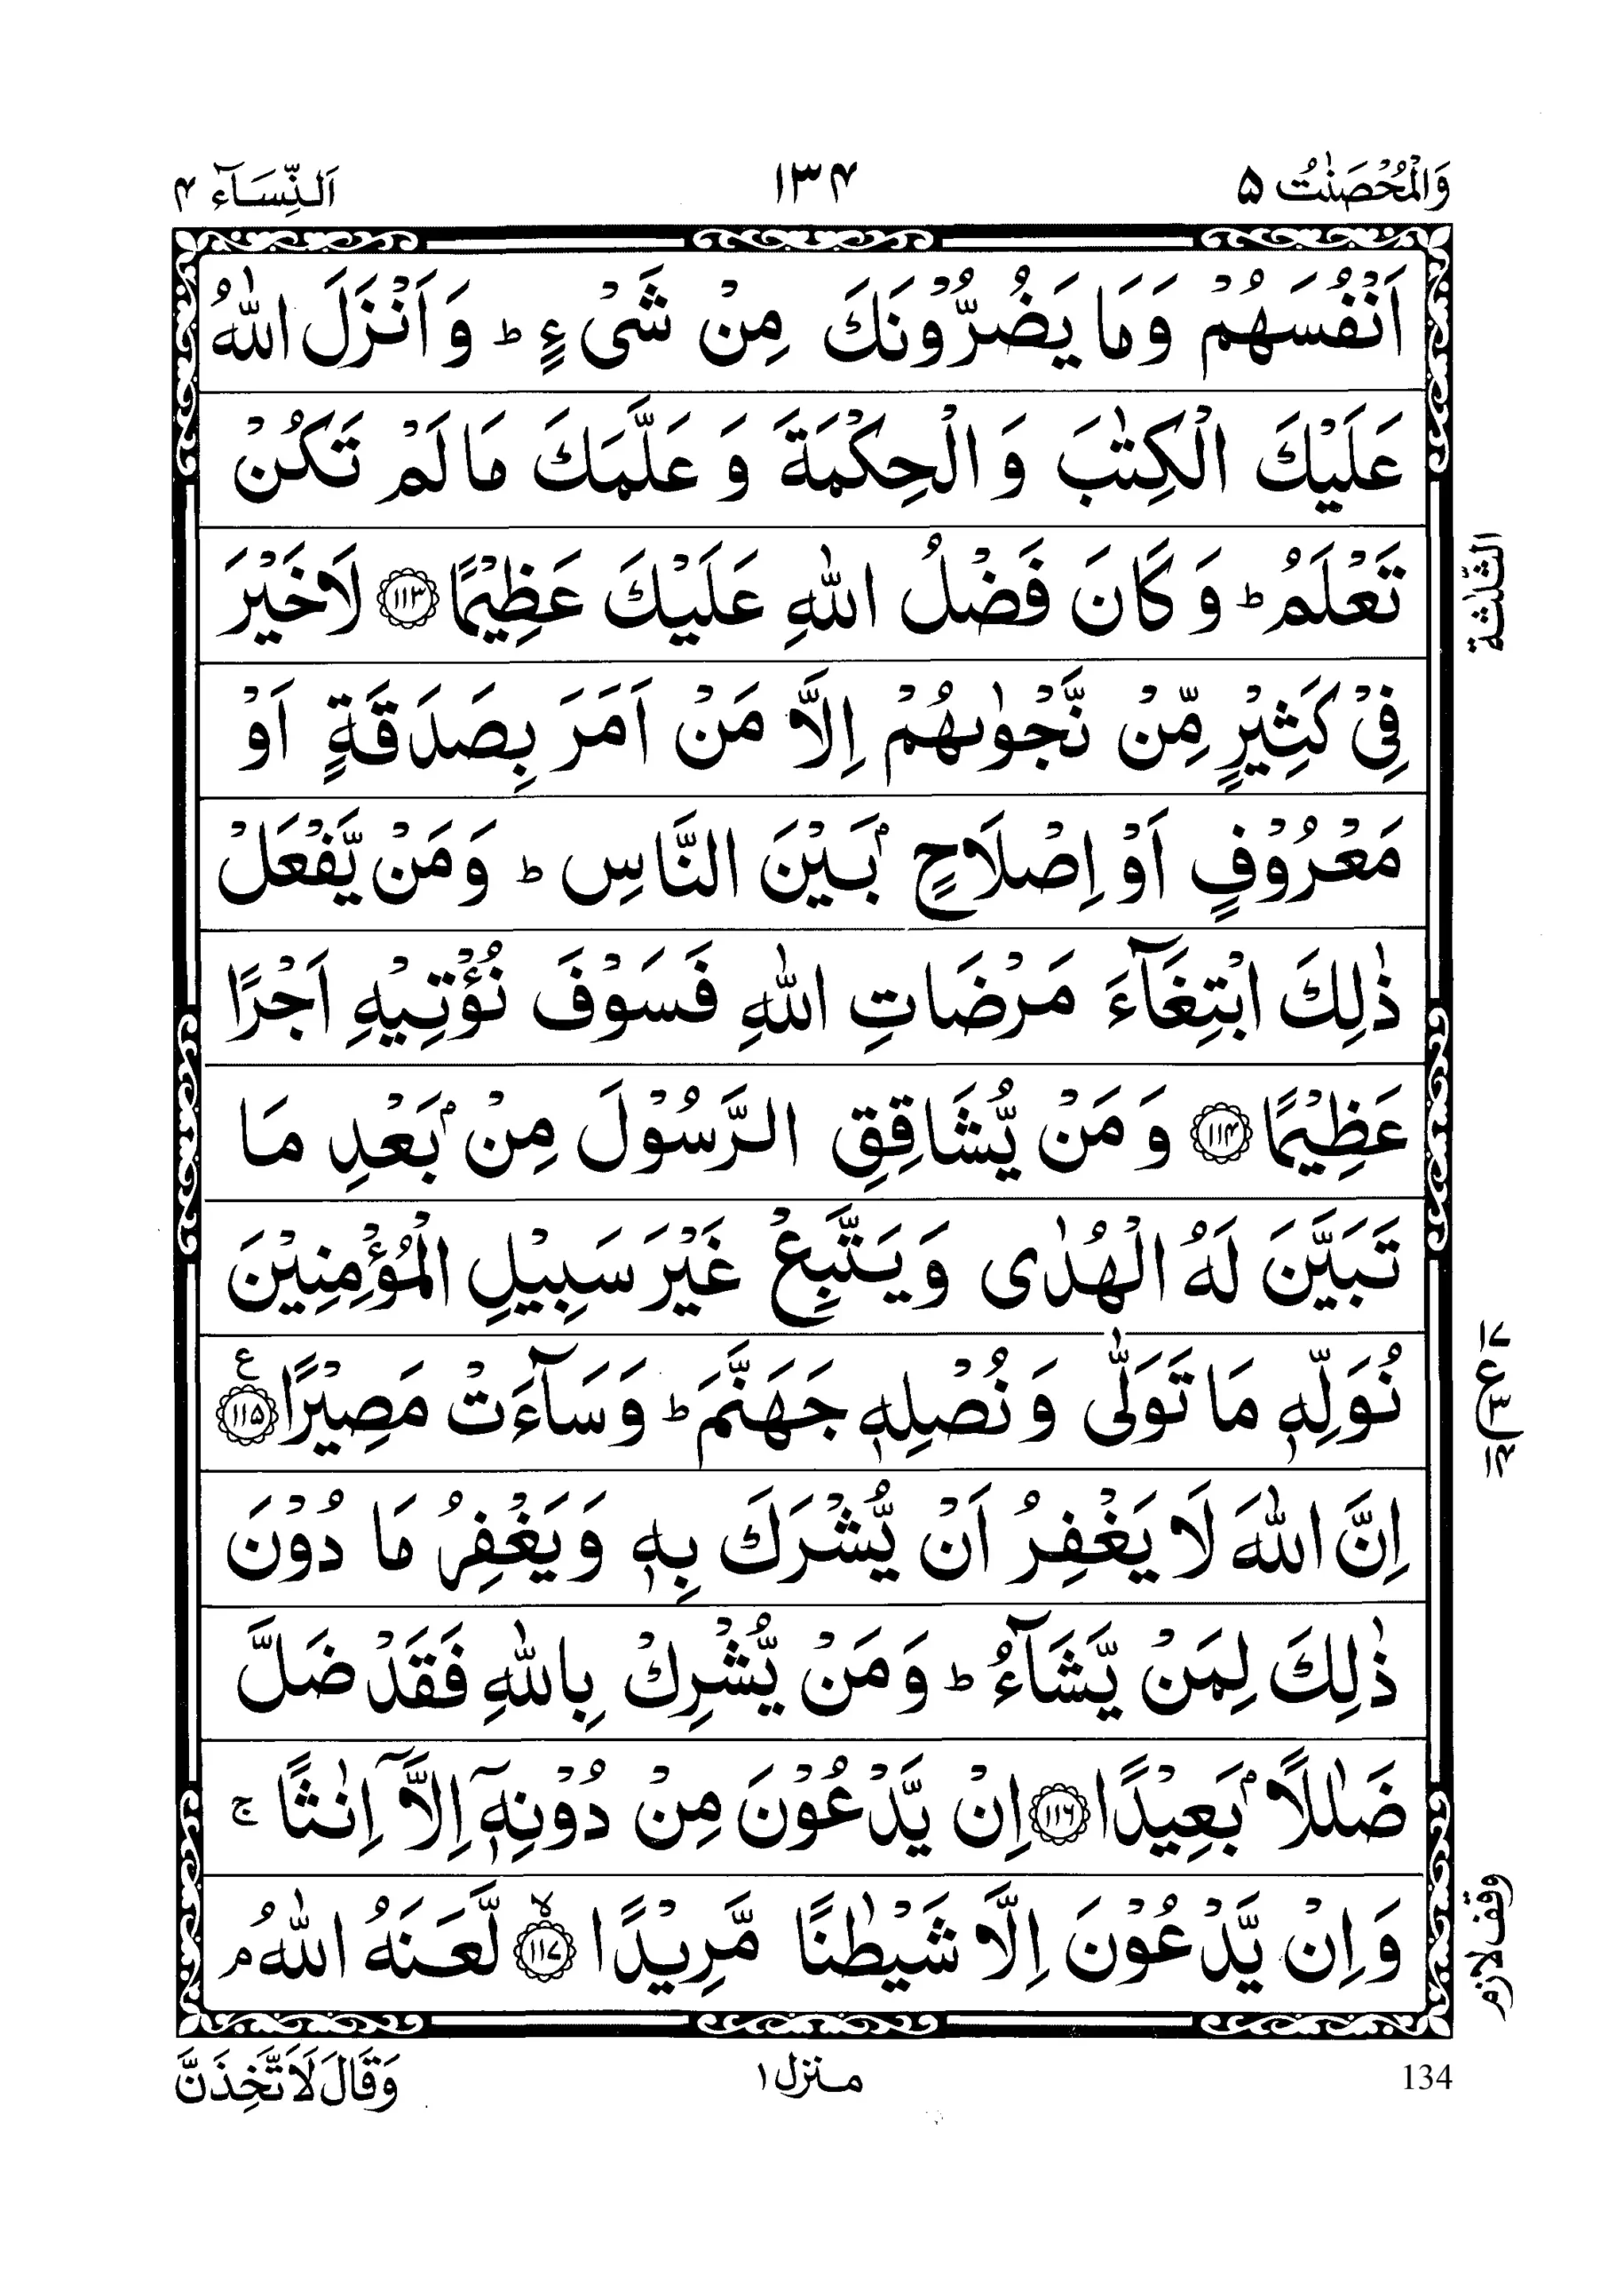 وَالْمُحْصَنٰتُ ۵ ۱۳۴ اَلنِّسَآء ۴
اَنْفُسَهُمْ وَمَا يَضُرُّوْنَكَ مِنْ شَىْءٍ ؕ وَاَنْزَلَ اللّٰهُ
عَلَيْكَ الْكِتٰبَ وَالْحِكْمَةَ وَعَلَّمَكَ مَا لَمْ تَكُنْ
تَعْلَمُ ؕ وَكَانَ فَضْلُ اللّٰهِ عَلَيْكَ عَظِيْمًا ﴿۱۱۳﴾ لَا خَيْرَ
الثلثة
فِىْ كَثِيْرٍ مِّنْ نَّجْوٰىهُمْ اِلَّا مَنْ اَمَرَ بِصَدَقَةٍ اَوْ
مَعْرُوْفٍ اَوْ اِصْلَاحٍۭ بَيْنَ النَّاسِ ؕ وَمَنْ يَّفْعَلْ
ذٰلِكَ ابْتِغَآءَ مَرْضَاتِ اللّٰهِ فَسَوْفَ نُؤْتِيْهِ اَجْرًا
عَظِيْمًا ﴿۱۱۴﴾ وَمَنْ يُّشَاقِقِ الرَّسُوْلَ مِنْۢ بَعْدِ مَا
تَبَيَّنَ لَهُ الْهُدٰى وَيَتَّبِعْ غَيْرَ سَبِيْلِ الْمُؤْمِنِيْنَ
نُوَلِّهٖ مَا تَوَلّٰى وَنُصْلِهٖ جَهَنَّمَ ؕ وَسَآءَتْ مَصِيْرًا ﴿۱۱۵﴾ ع
۱۷
ع ۳
۱۴
اِنَّ اللّٰهَ لَا يَغْفِرُ اَنْ يُّشْرَكَ بِهٖ وَيَغْفِرُ مَا دُوْنَ
ذٰلِكَ لِمَنْ يَّشَآءُ ؕ وَمَنْ يُّشْرِكْ بِاللّٰهِ فَقَدْ ضَلَّ
ضَلٰلًاۢ بَعِيْدًا ﴿۱۱۶﴾ اِنْ يَّدْعُوْنَ مِنْ دُوْنِهٖۤ اِلَّاۤ اِنٰثًا ۚ
وَاِنْ يَّدْعُوْنَ اِلَّا شَيْطٰنًا مَّرِيْدًا ﴿۱۱۷﴾ ۙ لَّعَنَهُ اللّٰهُ ۘ
وقف لازم
134 منزل ۱ وَقَالَ لَاَتَّخِذَنَّ